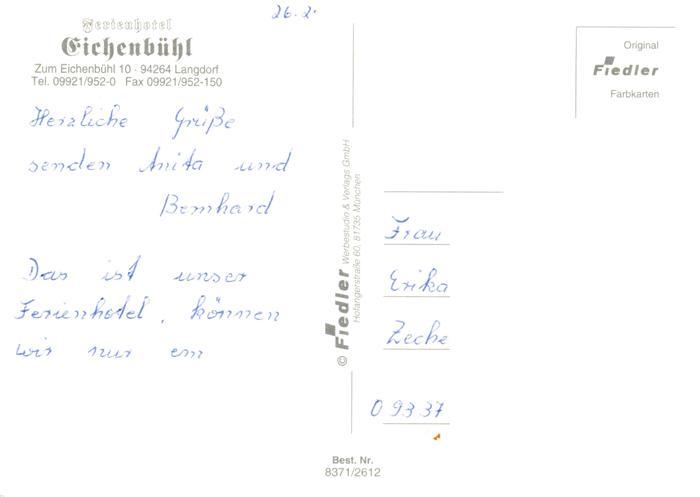 26.2.
Ferienhotel
Eichenbühl
Zum Eichenbühl 10 · 94264 Langdorf
Tel. 09921/952-0 Fax 09921/952-150
Herzliche Grüße
senden Anita und
Bernhard
Das ist unser
Ferienhotel, können
wir nur em
© Fiedler Werbestudio & Verlags GmbH
Hofangerstraße 60, 81735 München
Original
Fiedler
Farbkarten
Frau
Erika
Zeche
09337
Best. Nr.
8371/2612